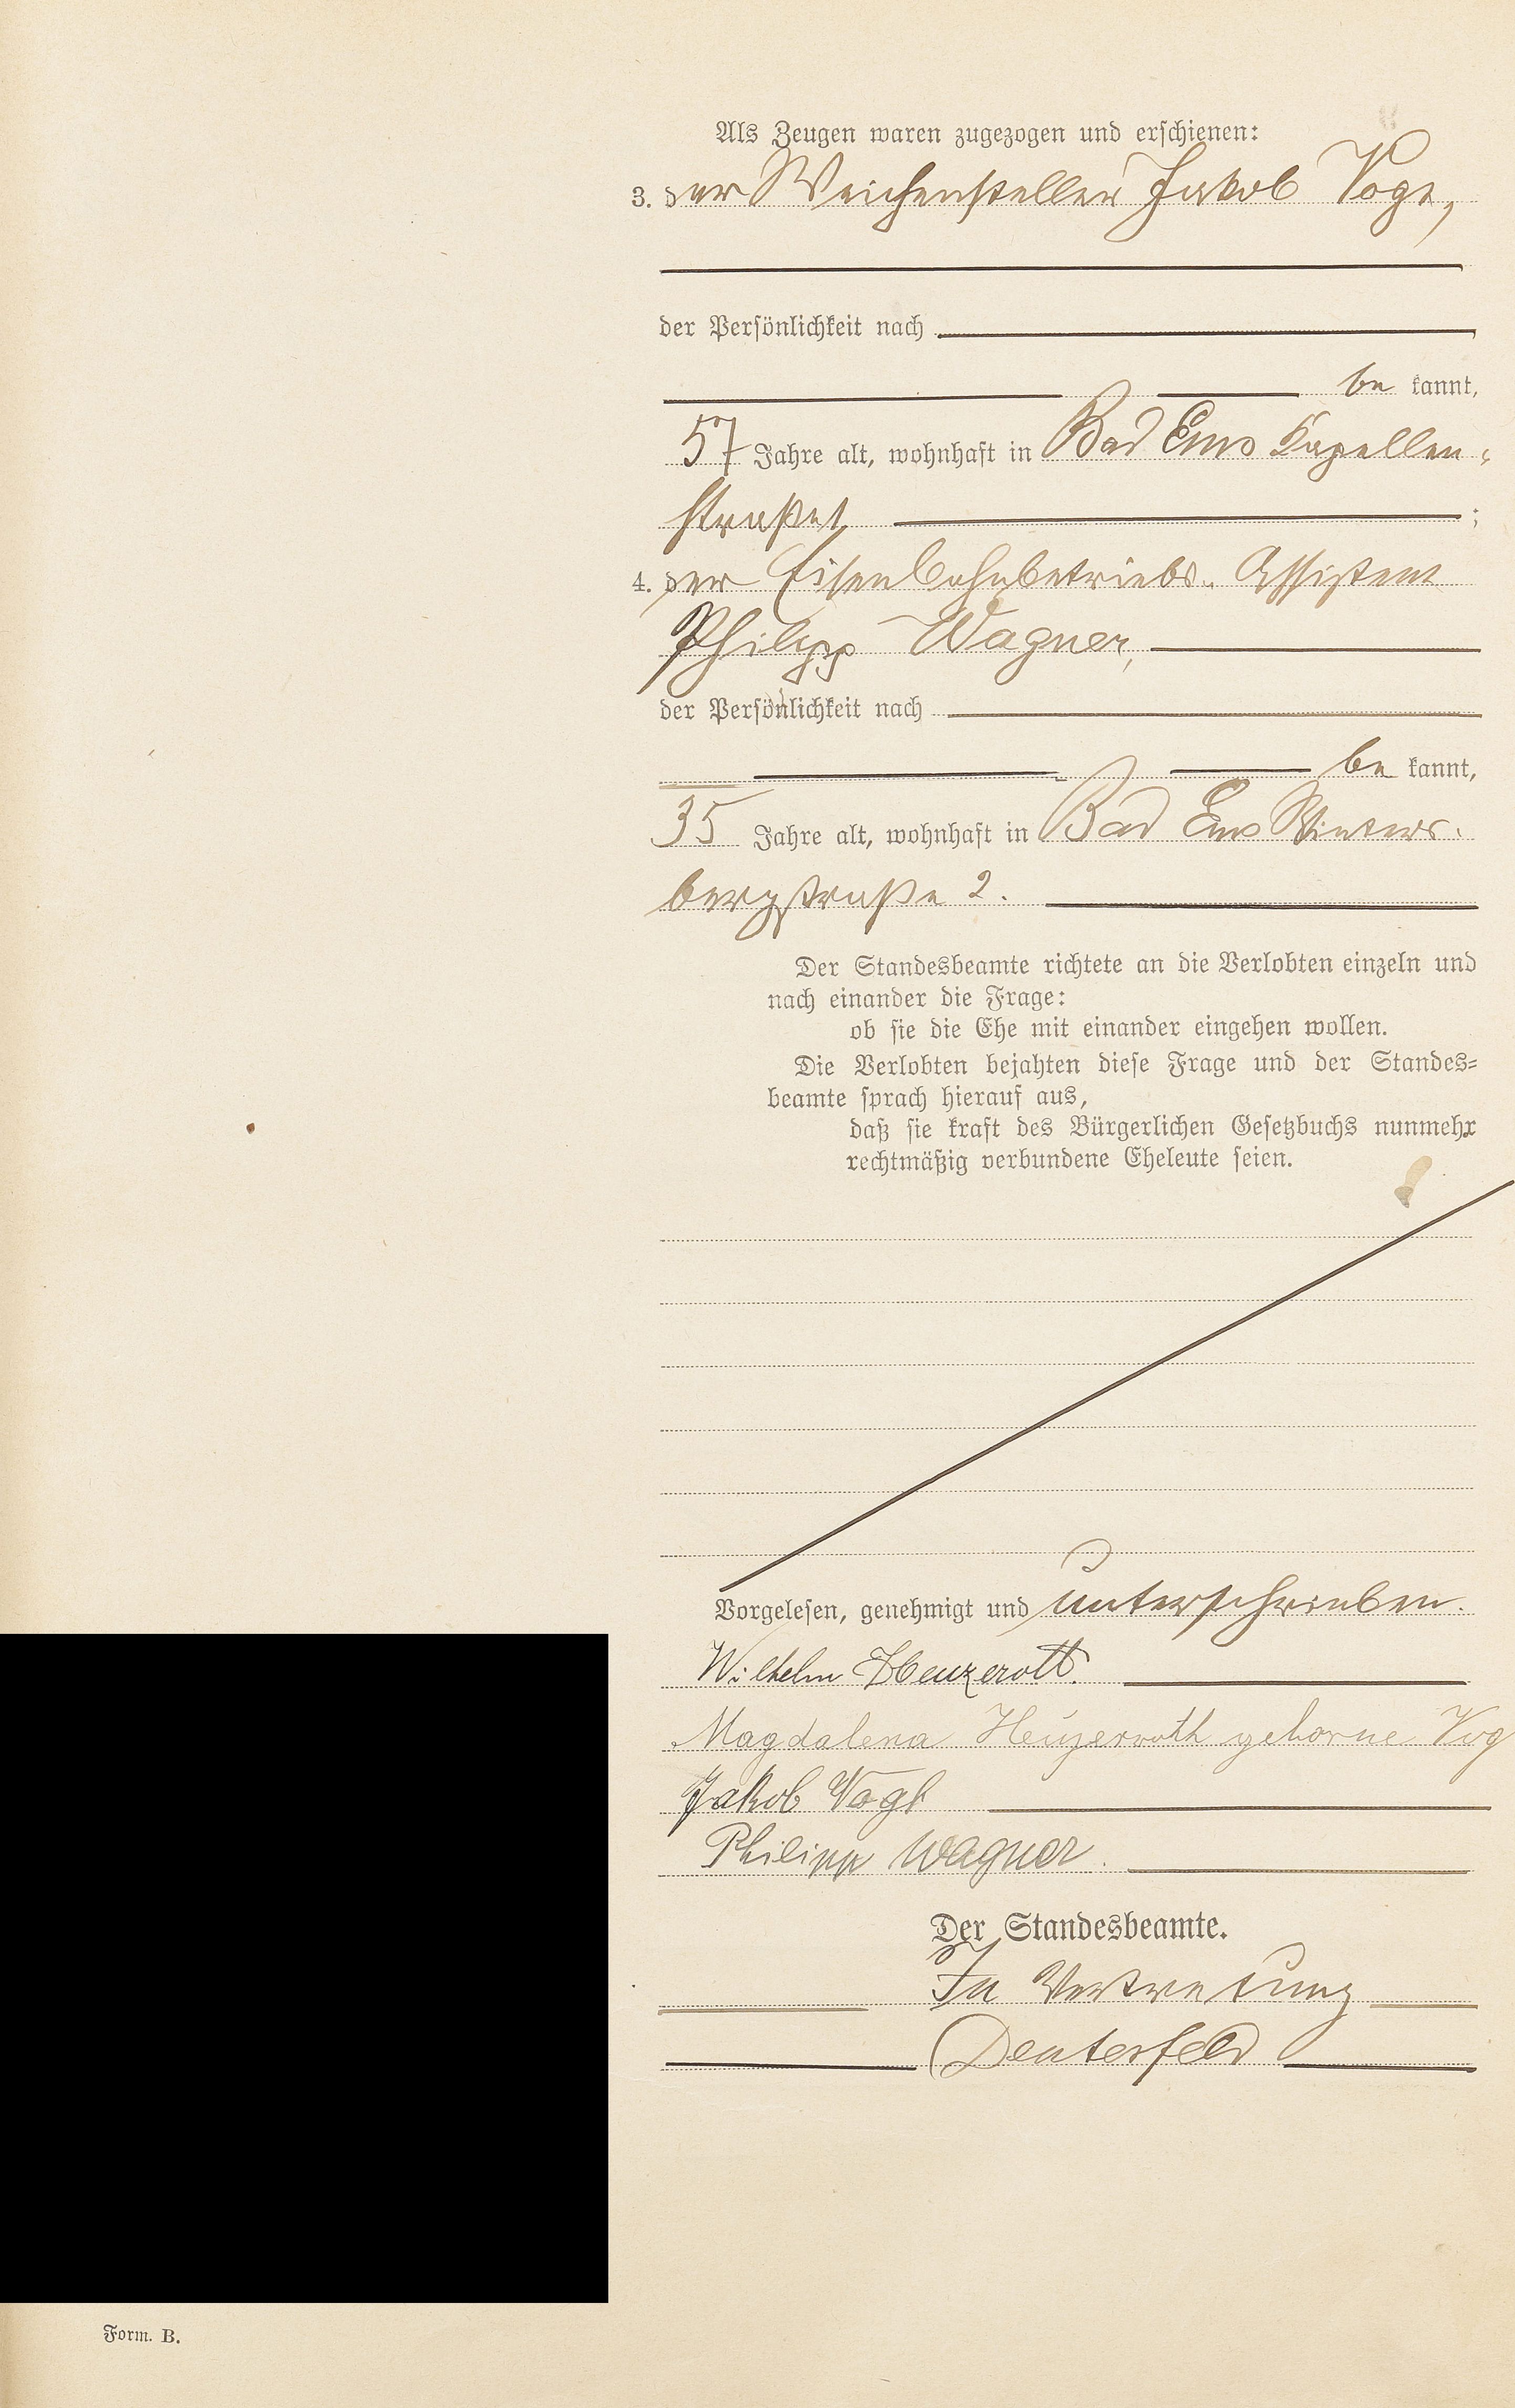 Als Zeugen waren zugezogen und erschienen:
3. der Weichensteller Jakob Vogt,
der Persönlichkeit nach
be kannt,
57 Jahre alt, wohnhaft in Bad Ems Kapellen-
straße 1 ;
4. der Eisenbahnbetriebs-Assistent
Philipp Wagner,
der Persönlichkeit nach
be kannt,
35 Jahre alt, wohnhaft in Bad Ems Winters-
bergstraße 2.
Der Standesbeamte richtete an die Verlobten einzeln und
nach einander die Frage:
ob sie die Ehe mit einander eingehen wollen.
Die Verlobten bejahten diese Frage und der Standes=
beamte sprach hierauf aus,
daß sie kraft des Bürgerlichen Gesetzbuchs nunmehr
rechtmäßig verbundene Eheleute seien.
Vorgelesen, genehmigt und unterschrieben.
Wilhelm Heuzeroth.
Magdalena Heuzeroth geborne Vog
Jakob Vogt
Philipp Wagner.
Der Standesbeamte.
In Vertretung
Deuterfeld
Form. B.